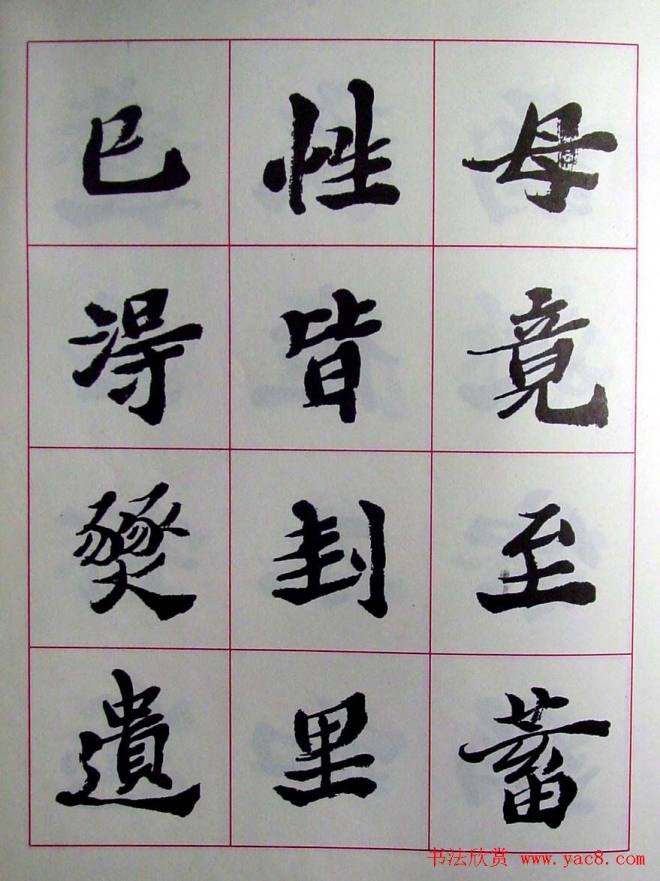 母竟至蓄
性皆封里
已得燹遺
书法欣赏 www.yac8.com